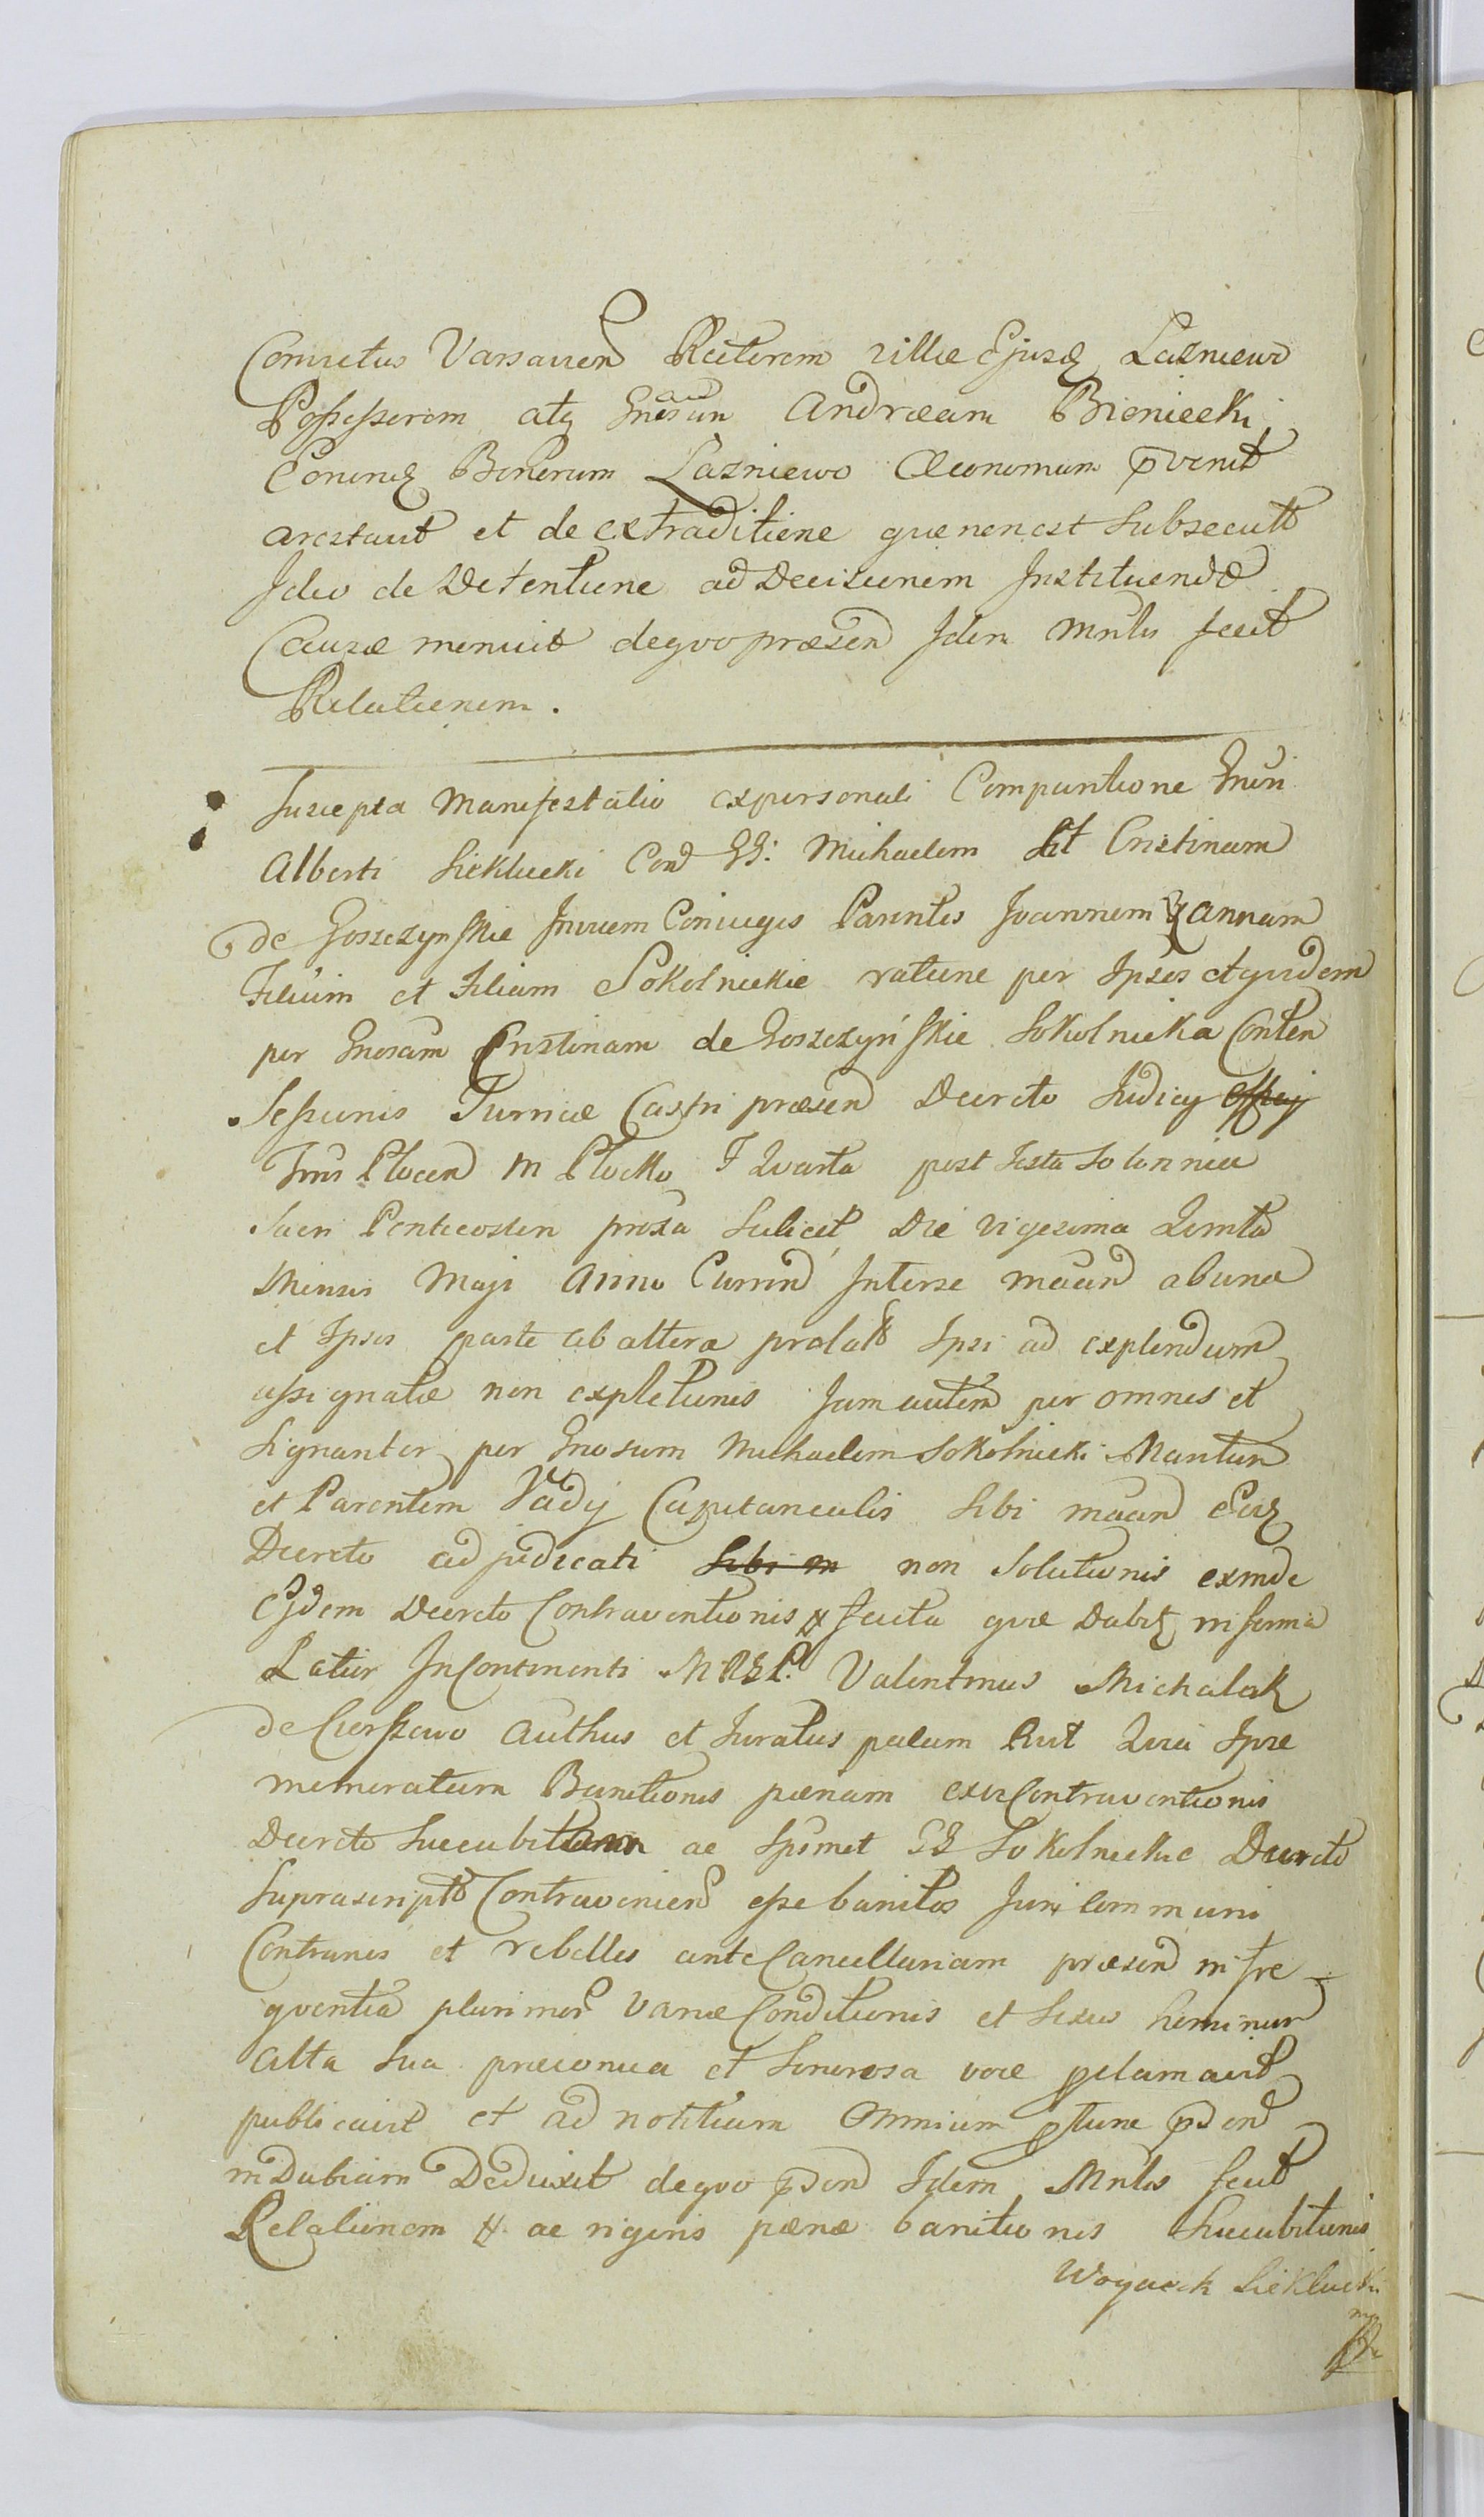 Comitatus Varsavien Rectorem villæ Ejusd Lazniewo
Possessorem atq Gnosum Andræam Bieniecki
Eorund Bonorum Lazniewo Œconomum pvenit
arestavit et de extraditione quæ non est Subsecuta
Ideo de Detentione ad Decisionem Instituendæ
Causæ monuit de quo præsen Idem Mnlis fecit
Relationem.
Suscepta Manifestatio ex personali Comparitione Gnosi
Alberti Siekłucki Con GG: Michaelem et Cristinam
de Goszczynskie Invicem Coniuges Parentes Joannem & Annam
Filium et Filiam Sokolnickie ratione per Ipsos et quidem
per Gnosam Cristinam de Goszczyńskie Sokolnicka Conten
Sessionis Turriæ Castri præsen Decreto Judicy Officy
Trris Plocen in Plocko F Quarta post Festa Solennia
Sacri Pentecosten proxa Scilicet Die vigesima Quinta
Mensis Maji Anno Curren Inter se maand ab una
et Ipsos parte ab altera prolato Ipsi ad explendum
assignatæ non expletionis Jam autem per omnes et
Signanter per Gnosum Michaelem Sokolnicki Maritum
et Parentem Vadij Capitanealis Sibi maand Eod
Decreto adjudicati Sibi m non Solutionis exinde
Ejdem Decreto Contraventionis # facta quæ Dabit in forma
Latior Incontinenti MRGL. Valentinus Michalak
de Cierszewo Authus et Juratus palam Rlvit Quia Ipse
memoratum Banitionis pænam exvi Contraventionis
Decreto Succubitam ac Ipsmet GG Sokolnickie Decreto
Suprascripto Contravenien esse banitos Juri communi
Contrarios et rebelles ante Cancellariam præsen in fre-
quentia plurimor variæ Conditionis et Sexus hominum
alta Sua præconica et Sonorosa voce pclamavit
publicavit et ad notitiam Omnium ptunc pden
indubiam Deduxit de quo pden Idem Mnlis fecit
Relationem # ac rigoris pænæ banitionis Succubitionis
Woyciech Siekłucki
mp